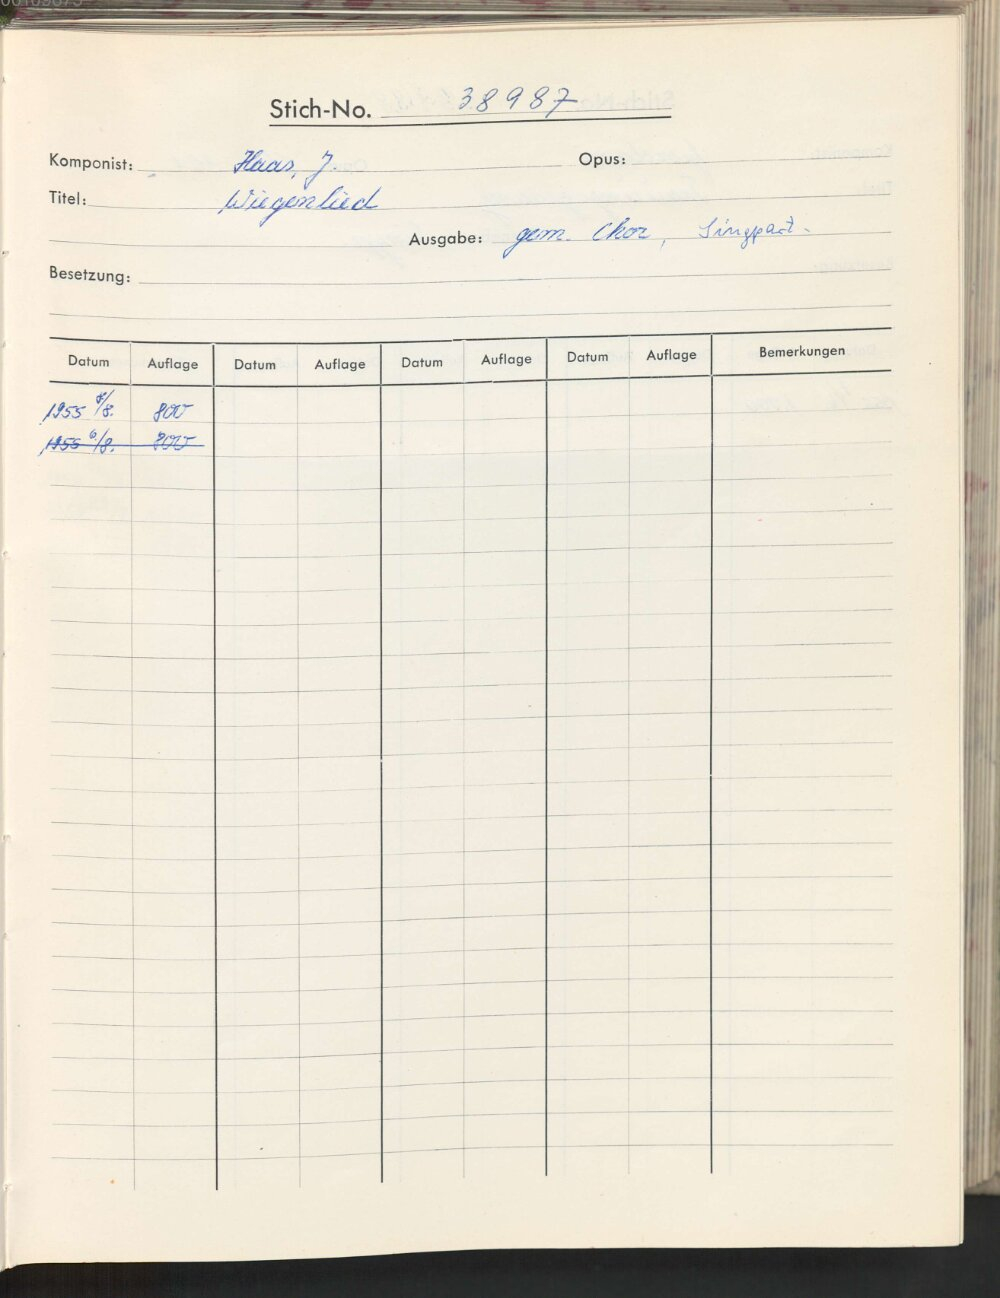 Stich-No. 38987
Komponist: Haas, J. Opus:
Titel: Wiegenlied
Ausgabe: gem. Chor, Singpart.
Besetzung:
Datum Auflage Datum Auflage Datum Auflage Datum Auflage Bemerkungen
1955 8/8. 800
1955 6/8. 800